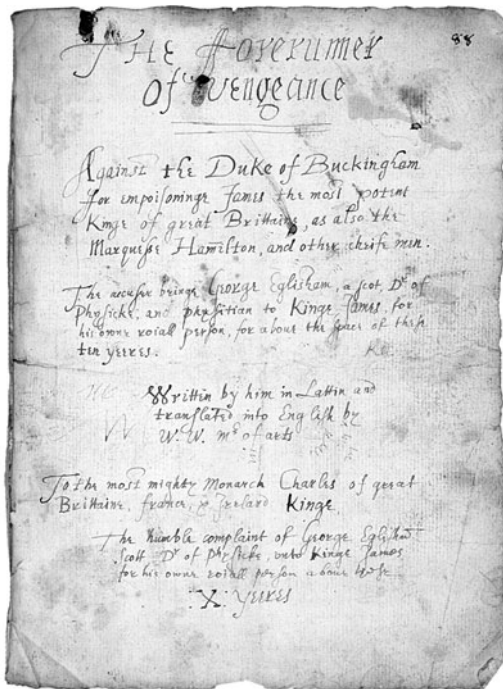 88
The Forerunner
of Vengeance
Against the Duke of Buckingham
for empoisoninge James the most potent
Kinge of great Brittaine, as also the
Marquesse Hamilton, and other cheife men.
The accuser beinge George Eglisham, a scot, Dr of
Physicke, and phisitian to Kinge James for
his owne roiall person, for about the space of these
ten yeeres.
Written by him in Lattin and
translated into English by
W. W. mr of arts
To the most mighty Monarch Charles of great
Brittaine, france, & Ireland Kinge.
The humble complaint of George Eglisham
Scott Dr of physicke, unto Kinge James
for his owne roiall person above
X. yeeres